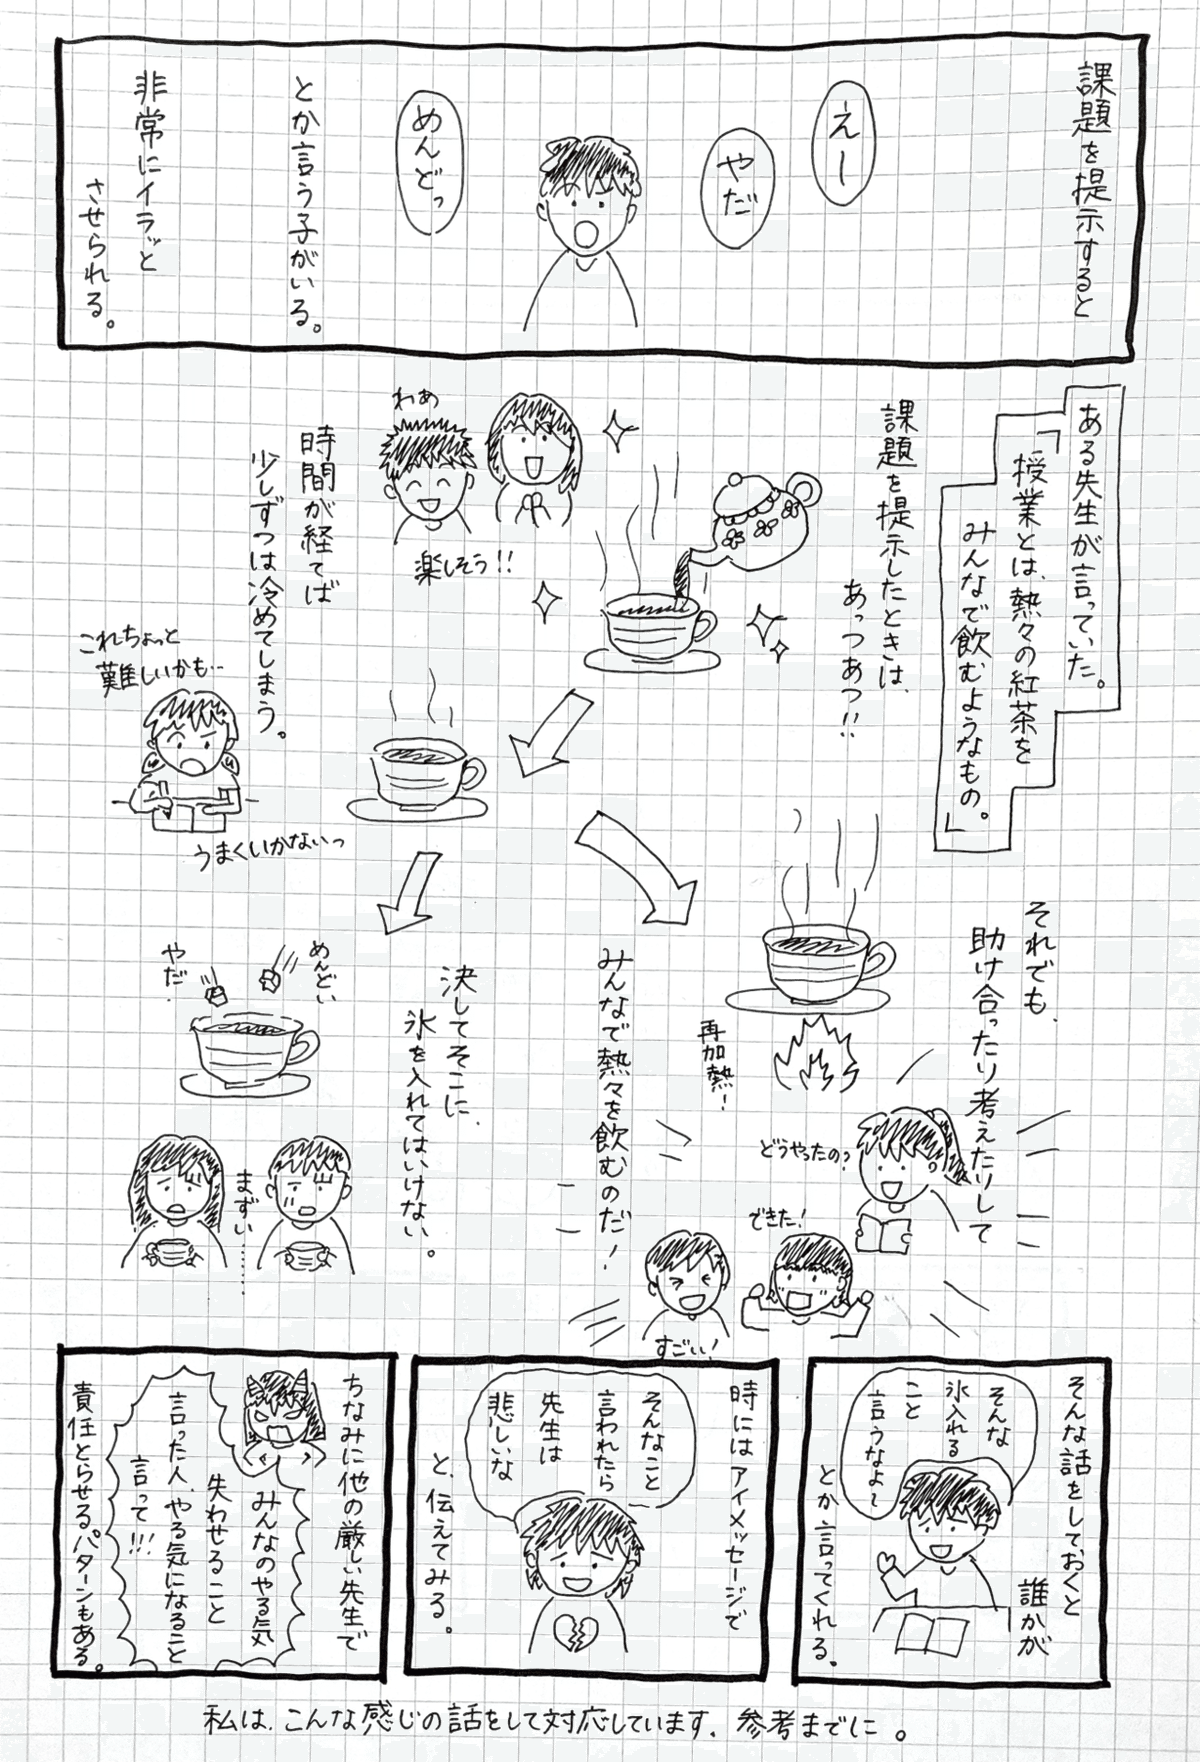 課題を提示すると
えー
やだ
めんどっ
とか言う子がいる。
非常にイラッと
させられる。
ある先生が言っていた。
「授業とは、熱々の紅茶を
みんなで飲むようなもの。」
課題を提示したときは、
あっつあつ!!
わぁ
楽しそう!!
時間が経てば
少しずつは冷めてしまう。
これちょっと
難しいかも…
うまくいかないっ
それでも、
助け合ったり考えたりして
再加熱!
どうやったの?
できた!
すごい!
みんなで熱々を飲むのだ!
決してそこに、
氷を入れてはいけない。
めんどい
やだ.
まずい……
そんな話をしておくと
誰かが
そんな
氷入れる
こと
言うなよ〜
とか言ってくれる。
時にはアイメッセージで
そんなこと
言われたら
先生は
悲しいな
と、伝えてみる。
ちなみに他の厳しい先生で
みんなのやる気
失わせること
言った人、やる気になること
言って!!!
責任とらせるパターンもある。
私は、こんな感じの話をして対応しています。参考までに。